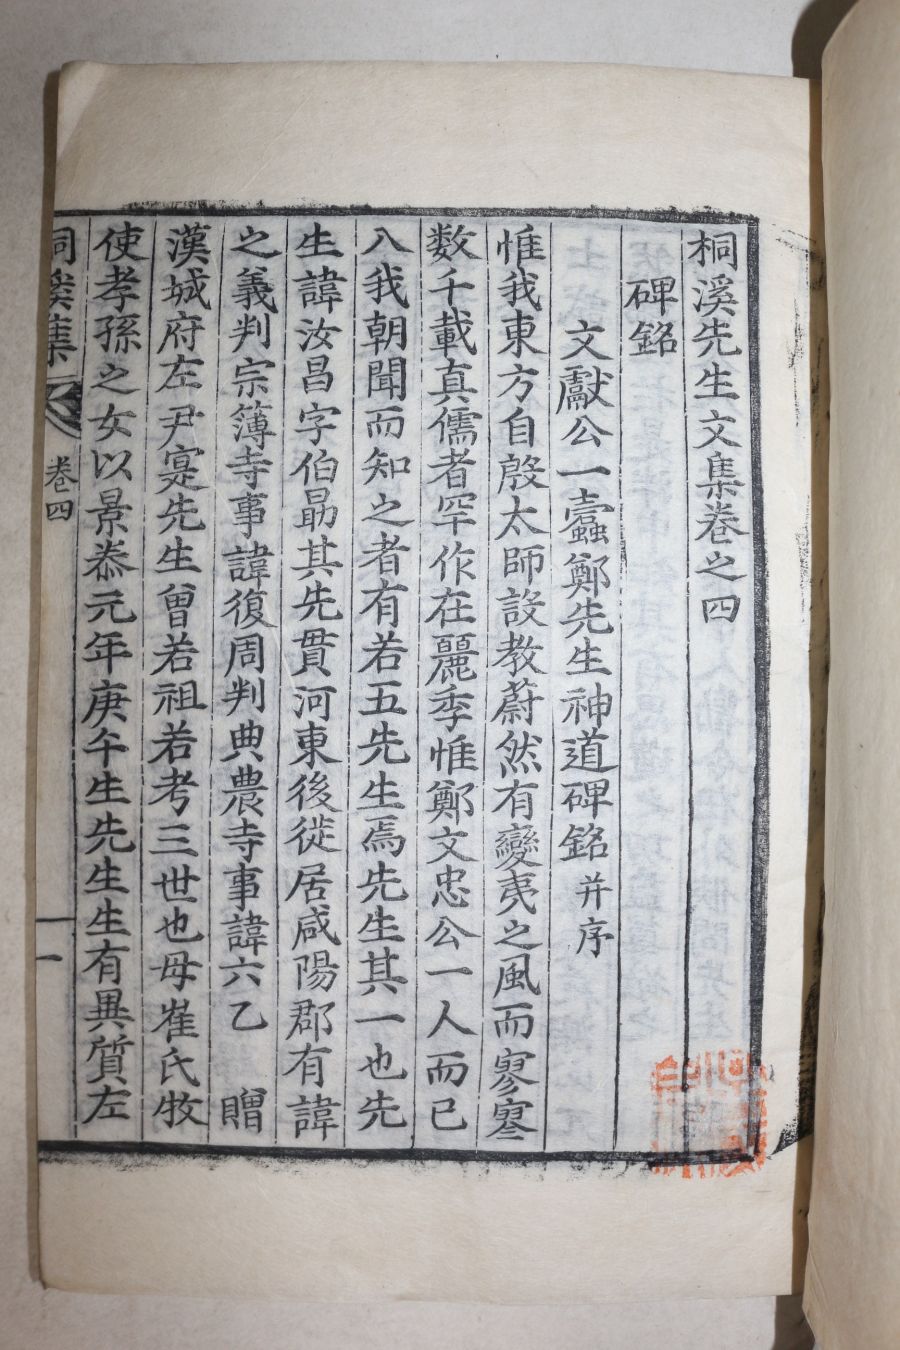 桐溪先生文集卷之四
碑銘
文獻公一蠹鄭先生神道碑銘 并序
惟我東方自殷太師設教蔚然有變夷之風而寥寥
数千載真儒者罕作在麗季惟鄭文忠公一人而已
入我朝聞而知之者有若五先生焉先生其一也先
生諱汝昌字伯勗其先貫河東後徙居咸陽郡有諱
之義判宗簿寺事諱復周判典農寺事諱六乙 贈
漢城府左尹寔先生曾若祖若考三世也母崔氏牧
使孝孫之女以景泰元年庚午生先生生有異質左
桐溪集 卷四 一